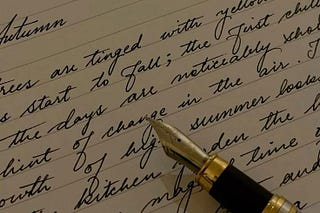 Autumn
trees are tinged with yellow
s start to fall; the first chill
the days are noticeably sho
hint of change in the air. T
of high summer looks
owth of den the h
kitchen time o
mag and